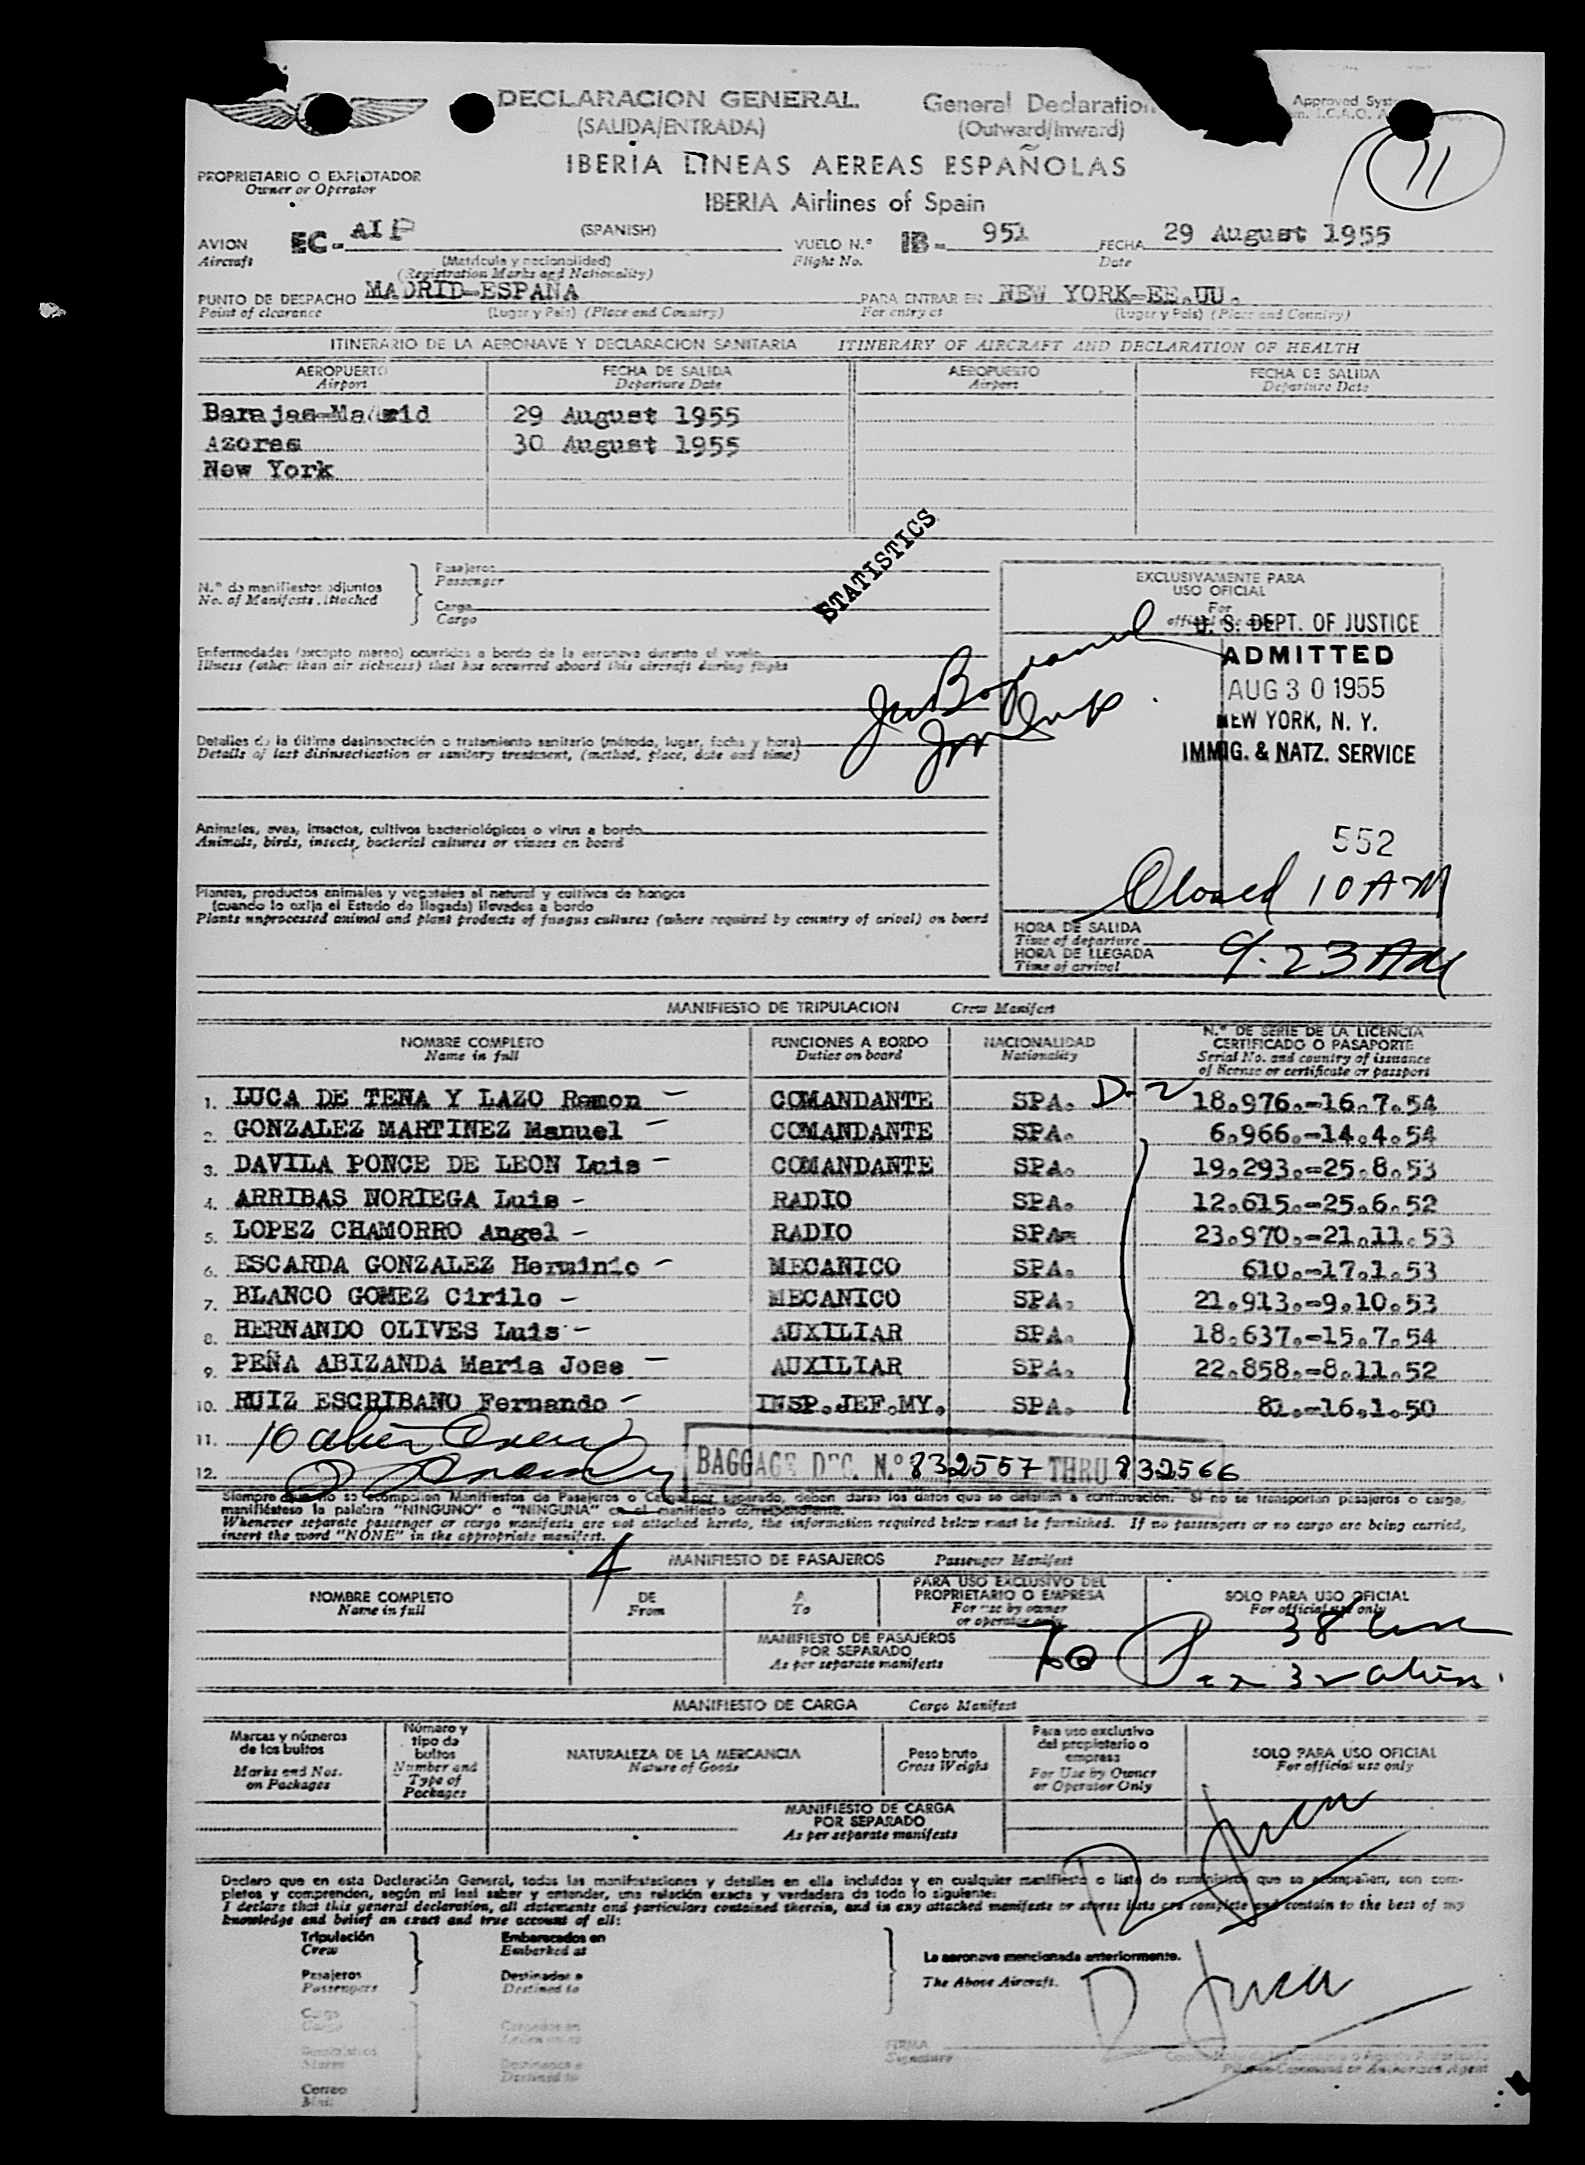 DECLARACION GENERAL General Declaration
(SALIDA/ENTRADA) (Outward/Inward)
Approved
11
IBERIA LINEAS AEREAS ESPAÑOLAS
IBERIA Airlines of Spain
PROPRIETARIO O EXPLOTADOR
Owner or Operator
AVION EC- AIP (SPANISH) VUELO N.º IB- 951 FECHA 29 August 1955
Aircraft (Matrícula y nacionalidad) Flight No. Date
(Registration Marks and Nationality)
PUNTO DE DESPACHO MADRID-ESPAÑA PARA ENTRAR EN NEW YORK-EE.UU.
Point of clearance (Lugar y País) (Place and Country) For entry at (Lugar y País) (Place and Country)
ITINERARIO DE LA AERONAVE Y DECLARACION SANITARIA ITINERARY OF AIRCRAFT AND DECLARATION OF HEALTH
AEROPUERTO FECHA DE SALIDA AEROPUERTO FECHA DE SALIDA
Airport Departure Date Airport Departure Date
Barajas-Madrid 29 August 1955
Azores 30 August 1955
New York
STATISTICS
N.º de manifiestos adjuntos
No. of Manifests Attached
Pasajeros
Passenger
Carga
Cargo
EXCLUSIVAMENTE PARA
USO OFICIAL
For
U. S. DEPT. OF JUSTICE
ADMITTED
AUG 30 1955
NEW YORK, N. Y.
IMMIG. & NATZ. SERVICE
552
Closed 10 AM
Enfermedades (excepto mareo) ocurridas a bordo de la aeronave durante el vuelo
Illness (other than air sickness) that has occurred aboard this aircraft during flight
Detalles de la última desinsectación o tratamiento sanitario (método, lugar, fecha y hora)
Details of last disinsectication or sanitary treatment, (method, place, date and time)
Animales, aves, insectos, cultivos bacteriológicos o virus a bordo
Animals, birds, insects, bacterial cultures or viases on board
Plantas, productos animales y vegetales al natural y cultivos de hongos
(cuando lo exija el Estado de llegada) llevados a bordo
Plants unprocessed animal and plant products of fungus cultures (where required by country of arival) on board
HORA DE SALIDA
Time of departure
HORA DE LLEGADA 9.23 AM
Time of arrival
MANIFIESTO DE TRIPULACION Crew Manifest
NOMBRE COMPLETO FUNCIONES A BORDO NACIONALIDAD N.º DE SERIE DE LA LICENCIA
CERTIFICADO O PASAPORTE
Name in full Duties on board Nationality Serial No. and country of issuance
of license or certificate or passport
1. LUCA DE TENA Y LAZO Ramon - COMANDANTE SPA. D-2 18.976.-16.7.54
2. GONZALEZ MARTINEZ Manuel - COMANDANTE SPA. 6.966.-14.4.54
3. DAVILA PONCE DE LEON Luis - COMANDANTE SPA. 19.293.-25.8.53
4. ARRIBAS NORIEGA Luis - RADIO SPA. 12.615.-25.6.52
5. LOPEZ CHAMORRO Angel - RADIO SPA. 23.970.-21.11.53
6. ESCARDA GONZALEZ Herminio - MECANICO SPA. 610.-17.1.53
7. BLANCO GOMEZ Cirilo - MECANICO SPA. 21.913.-9.10.53
8. HERNANDO OLIVES Luis - AUXILIAR SPA. 18.637.-15.7.54
9. PEÑA ABIZANDA Maria Jose - AUXILIAR SPA. 22.858.-8.11.52
10. RUIZ ESCRIBANO Fernando - INSP.JEF.MY. SPA. 81.-16.1.50
11. 10 alien Crew
12.
BAGGAGE DEC. N.º 832557 THRU 832566
Siempre que no se acompañen Manifiestos de Pasajeros o Carga por separado, deben darse los datos que se detallan a continuación. Si no se transportan pasajeros o carga,
manifiéstese la palabra "NINGUNO" o "NINGUNA" en el manifiesto correspondiente.
Whenever separate passenger or cargo manifests are not attached hereto, the information required below must be furnished. If no passengers or no cargo are being carried,
insert the word "NONE" in the appropriate manifest.
MANIFIESTO DE PASAJEROS Passenger Manifest
NOMBRE COMPLETO DE A PARA USO EXCLUSIVO DEL
PROPRIETARIO O EMPRESA SOLO PARA USO OFICIAL
Name in full From To For use by owner
or operator only For official use only
MANIFIESTO DE PASAJEROS
POR SEPARADO
As per separate manifests
70 38
32 alien
MANIFIESTO DE CARGA Cargo Manifest
Marcas y números
de los bultos
Marks and Nos.
on Packages
Número y
tipo de
bultos
Number and
Type of
Packages
NATURALEZA DE LA MERCANCIA
Nature of Goods
Peso bruto
Gross Weight
Para uso exclusivo
del propietario o
empresa
For Use by Owner
or Operator Only
SOLO PARA USO OFICIAL
For official use only
MANIFIESTO DE CARGA
POR SEPARADO
As per separate manifests
Declaro que en esta Declaración General, todas las manifestaciones y detalles en ella incluídos y en cualquier manifiesto o lista de suministros que se acompañen, son com-
pletos y comprenden, según mi leal saber y entender, una relación exacta y verdadera de todo lo siguiente:
I declare that this general declaration, all statements and particulars contained therein, and in any attached manifests or stores lists are complete and contain to the best of my
knowledge and belief an exact and true account of all:
Tripulación
Crew
Pasajeros
Passengers
Carga
Cargo
Stores
Correo
Mail
Embarcados en
Embarked at
Destinados a
Destined to
Cargados en
Destinados a
Destined to
La aeronave mencionada anteriormente.
The Above Aircraft.
FIRMA
Signature
Pilot-in-Command or Authorized Agent